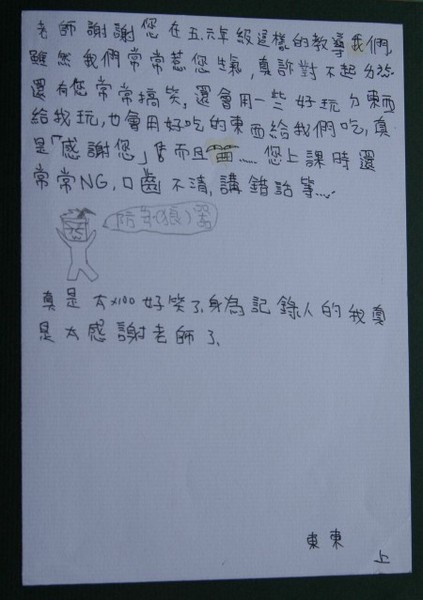 老師謝謝您在五.六年級這樣的教導我們,
雖然我們常常惹您生氣,真的對不起
還有您常常搞笑,還會用一些好玩ㄉ東西
給我玩,也會用好吃的東西給我們吃,真
是「感謝您」而且……您上課時還
常常NG,口齒不清,講錯話等……
真是太x100好笑了.身為記錄人的我真
是太感謝老師了.
東東
上